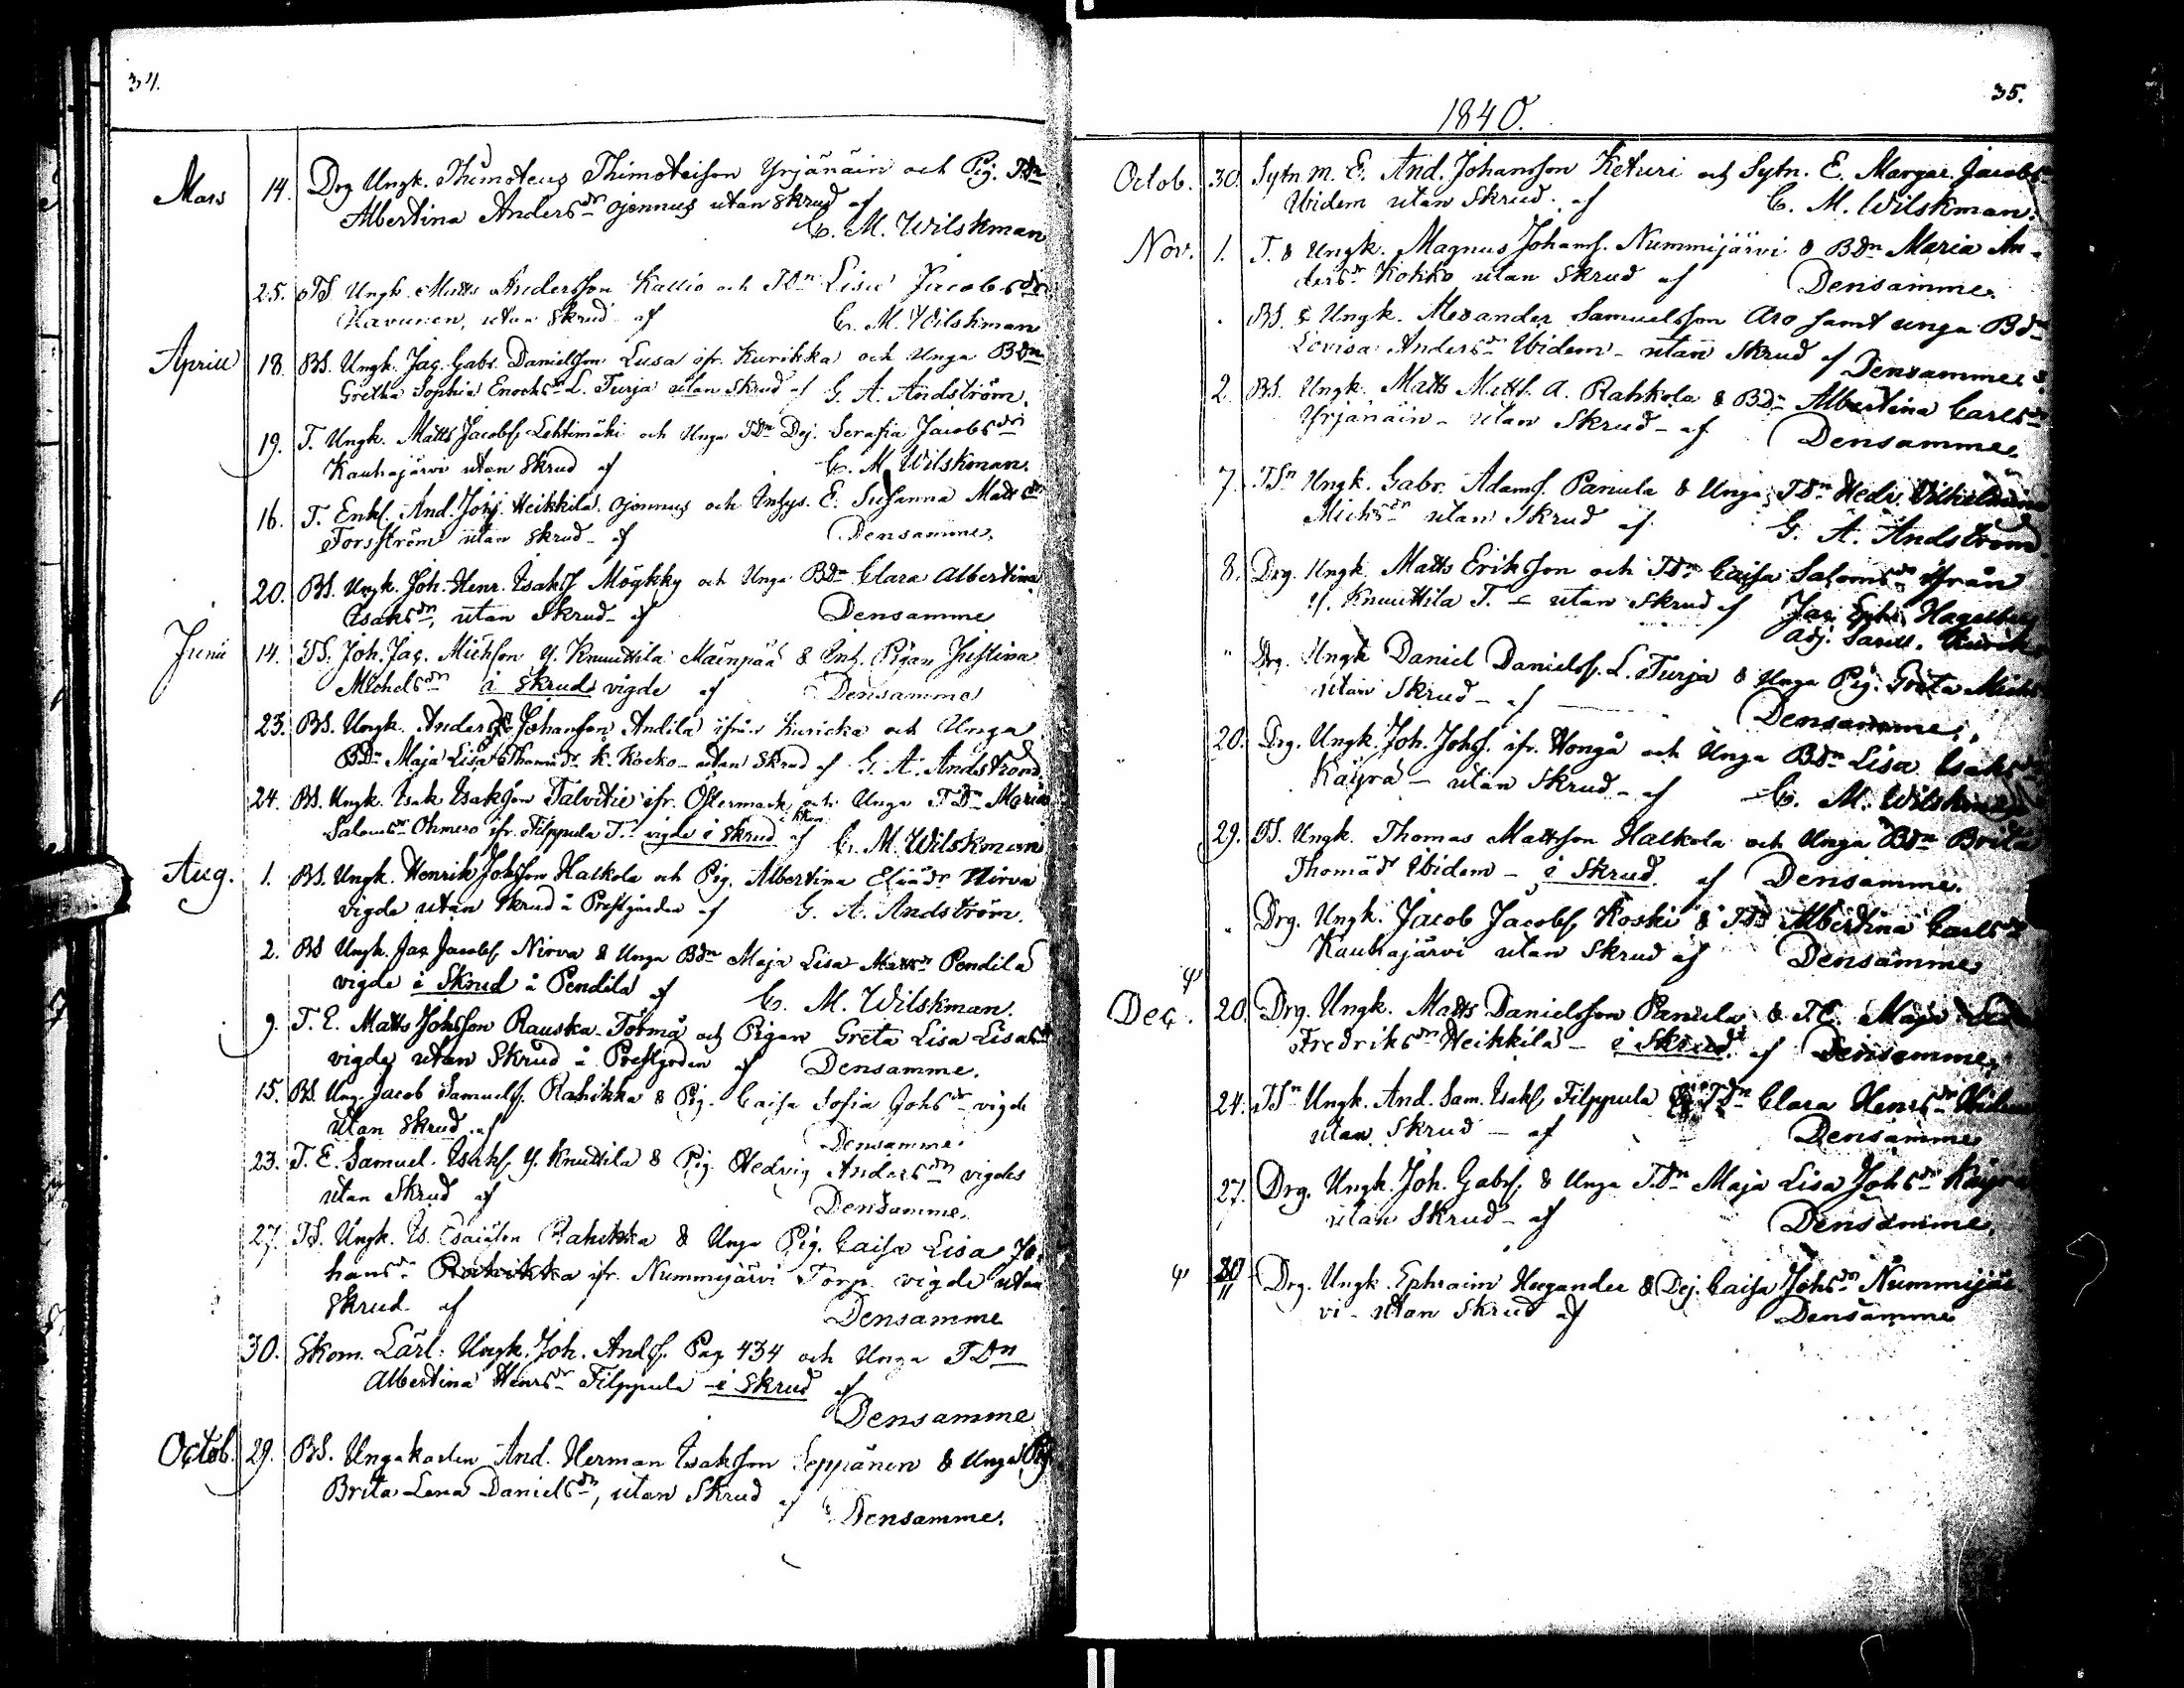 34.
Mars 14. Drg Ungk. Thimoteus Thimoteisson Yrjänäin och Pig. TDr
Albertina Andersdr ojennus utan skrud af
C. M. Wilskman
25. TS. Ungk. Matts Andersson Kallio och TDn Lisa Jacobsdr
Havunen, utan skrud af C. M. Wilskman
Aprill 18. BS. Ungk. Jac. Gabr. Danielsson Lusa ifr. Kurikka och Unga BDn
Gretha Sophia Enochsdr L. Turja utan skrud af G. A. Andström.
19. T. Ungk. Matts Jacobss. Lehtimäki och Unga TDn Dej. Serafia Jacobsdr
Kauhajärvi utan skrud af C. M. Wilskman.
16. T. Enkl. And. Johss. Heikkilä ojennus och Inhys. E. Susanna Mattsdr
Forsström utan skrud - af Densamme.
20. BS. Ungk. Joh. Henr. Isakss. Mögkky och Unga BDn Clara Albertina
Isaksdr, utan Skrud - af Densamme
Junii 14. TS. Joh. Jac. Michsson Y. Knuuttila Mäenpää & Inh. Pigan Justina
Michelsdr i skrud vigde af Densamme
23. BS. Ungk. Anders Johansson Andila ifrån Kuricka och Unga
BDn Maja Lisa Thomädr K. Kocko - utan Skrud af G. A. Andström.
24. BS. Ungk. Isak Isaksson Talvitie ifr. Östermark och Unga TDn Maria
Salomsdr Ohmero ifr. Filppula T. vigde i skrud af C. M. Wilskman
Aug. 1. BS. Ungk. Henrik Johsson Halkola och Pig. Albertina Eliädr Nirva
vigde utan skrud å Prestgården af G. A. Andström.
2. BS Ungk. Jac Jacobss. Nirva & Unga BDn Maja Lisa Mattsdr Pendilä
vigde i Skrud å Pendilä af C. M. Wilskman.
9. T. E. Matts Johsson Rauska-Tormä och Pigan Greta Lisa Lisasdr
vigde utan Skrud å Prestgården af Densamme.
15. BS. Ung. Jacob Samuelss. Rahikka & Pig. Caisa Sofia Johsdr vigde
utan skrud af Densamme.
23. T. E. Samuel Isakss. Y. Knuttila & Pig. Hedvig Andersdr vigdes
utan Skrud af Densamme.
27. TS. Ungk. Is. Esaiäson Rahikka & Unga Pig. Caisa Lisa Jo-
hansdr Rahikka ifr. Nummijärvi Torp. vigde utan
skrud. af Densamme
30. Skom. Lärl: Ungk. Joh. Andss. Pag 434 och Unga TDn
Albertina Henrsdr Filppula - i skrud af
Densamme
Octob. 29. BS. Ungakarlen And. Herman Isaksson Seppänen & Unga Pig.
Brita Lena Danielsdr, utan Skrud af Densamme.
35.
1840.
Octob. 30. Sytn. m. E. And. Johansson Keturi och Sytn. E. Margar. Jacobs
Ibidem utan Skrud. af C. M. Wilskman.
Nov. 1. T. & Ungk. Magnus Johanss. Nummijärvi & BDn Maria An-
dersdr Kokko utan Skrud af Densamme.
BS. & Ungk. Alexander Samuelsson Aro samt unga BDn
Lovisa Andersdr Ibidem - utan Skrud af Densamme.
2. BS. Ungk. Matts Mattss. A. Rahkola & BDn Albertina Carlsdr
Yrjänäin - utan Skrud - af Densamme.
7. TSn Ungk. Gabr. Adamss. Panula & Unga TDn Hedv. Vilhelmina
Michsdr utan Skrud af G. A. Andström
8. Drg. Ungk. Matts Eriksson och TDn Caisa Salomsdr ifrån
Y. Knuuttila T. - utan skrud af Jac.
Adj. Kurik
" Drg. Ungk Daniel Danielss. L. Turja & Unga Pig. Greta Michs
utan Skrud - af Densamme.
20. Drg. Ungk. Joh. Johss. ifr. Hongå och Unga BDn Lisa Isaksdr
Käyrä - utan Skrud - af C. M. Wilskman
29. TS. Ungk. Thomas Mattsson Halkola och Unga BDn Brita
Thomädr Ibidem - i Skrud. af Densamme.
Drg. Ungk. Jacob Jacobss. Koski & TD Albertina Carlsdr
Kauhajärvi utan Skrud af Densamme
Dec. 20. Drg. Ungk. Matts Danielsson Panula & TD. Maja
Fredriksdr Heikkilä - i Skrud. af Densamme.
24. TSn Ungk. And. Sam. Isakss. Filppula & TDn Clara Henrsdr Ibidem
utan Skrud - af Densamme
27. Drg. Ungk. Joh. Gabrss. & Unga TDn Maja Lisa Johsdr Käyrä
utan Skrud - af Densamme.
Drg. Ungk. Ephraim Hægander & Dej. Caisa Johsdr Nummijär-
vi - utan Skrud af Densamme